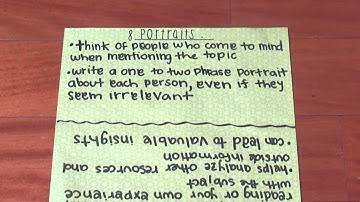 8. Portraits.
• think of people who come to mind
when mentioning the topic
• write a one to two phrase portrait
about each person, even if they
seem irrelevant
reading or your own experience
with the subject
• helps analyze other resources and
outside information
• can lead to valuable insights